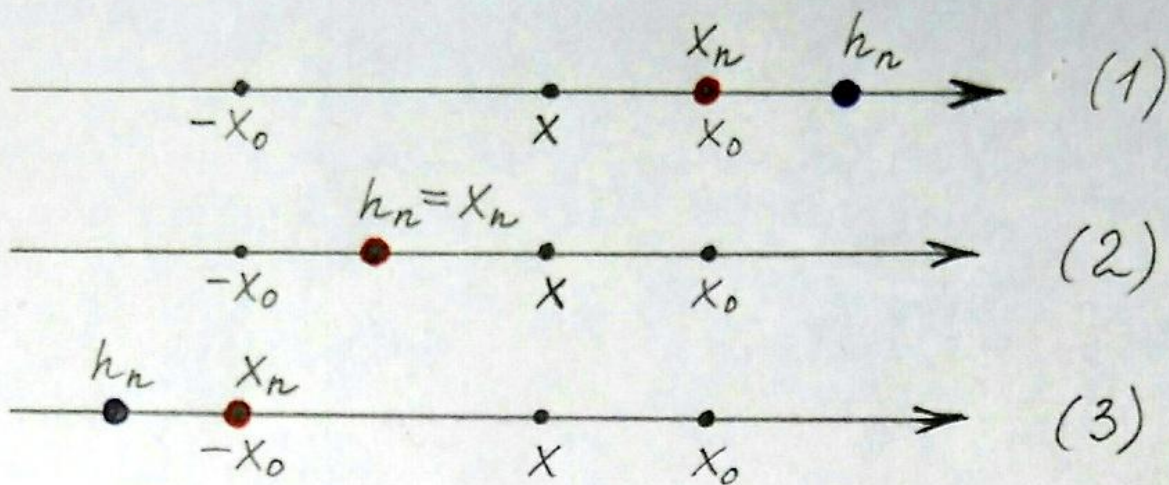 xₙ hₙ
(1)
-x₀ x x₀
hₙ = xₙ
(2)
-x₀ x x₀
hₙ xₙ
(3)
-x₀ x x₀